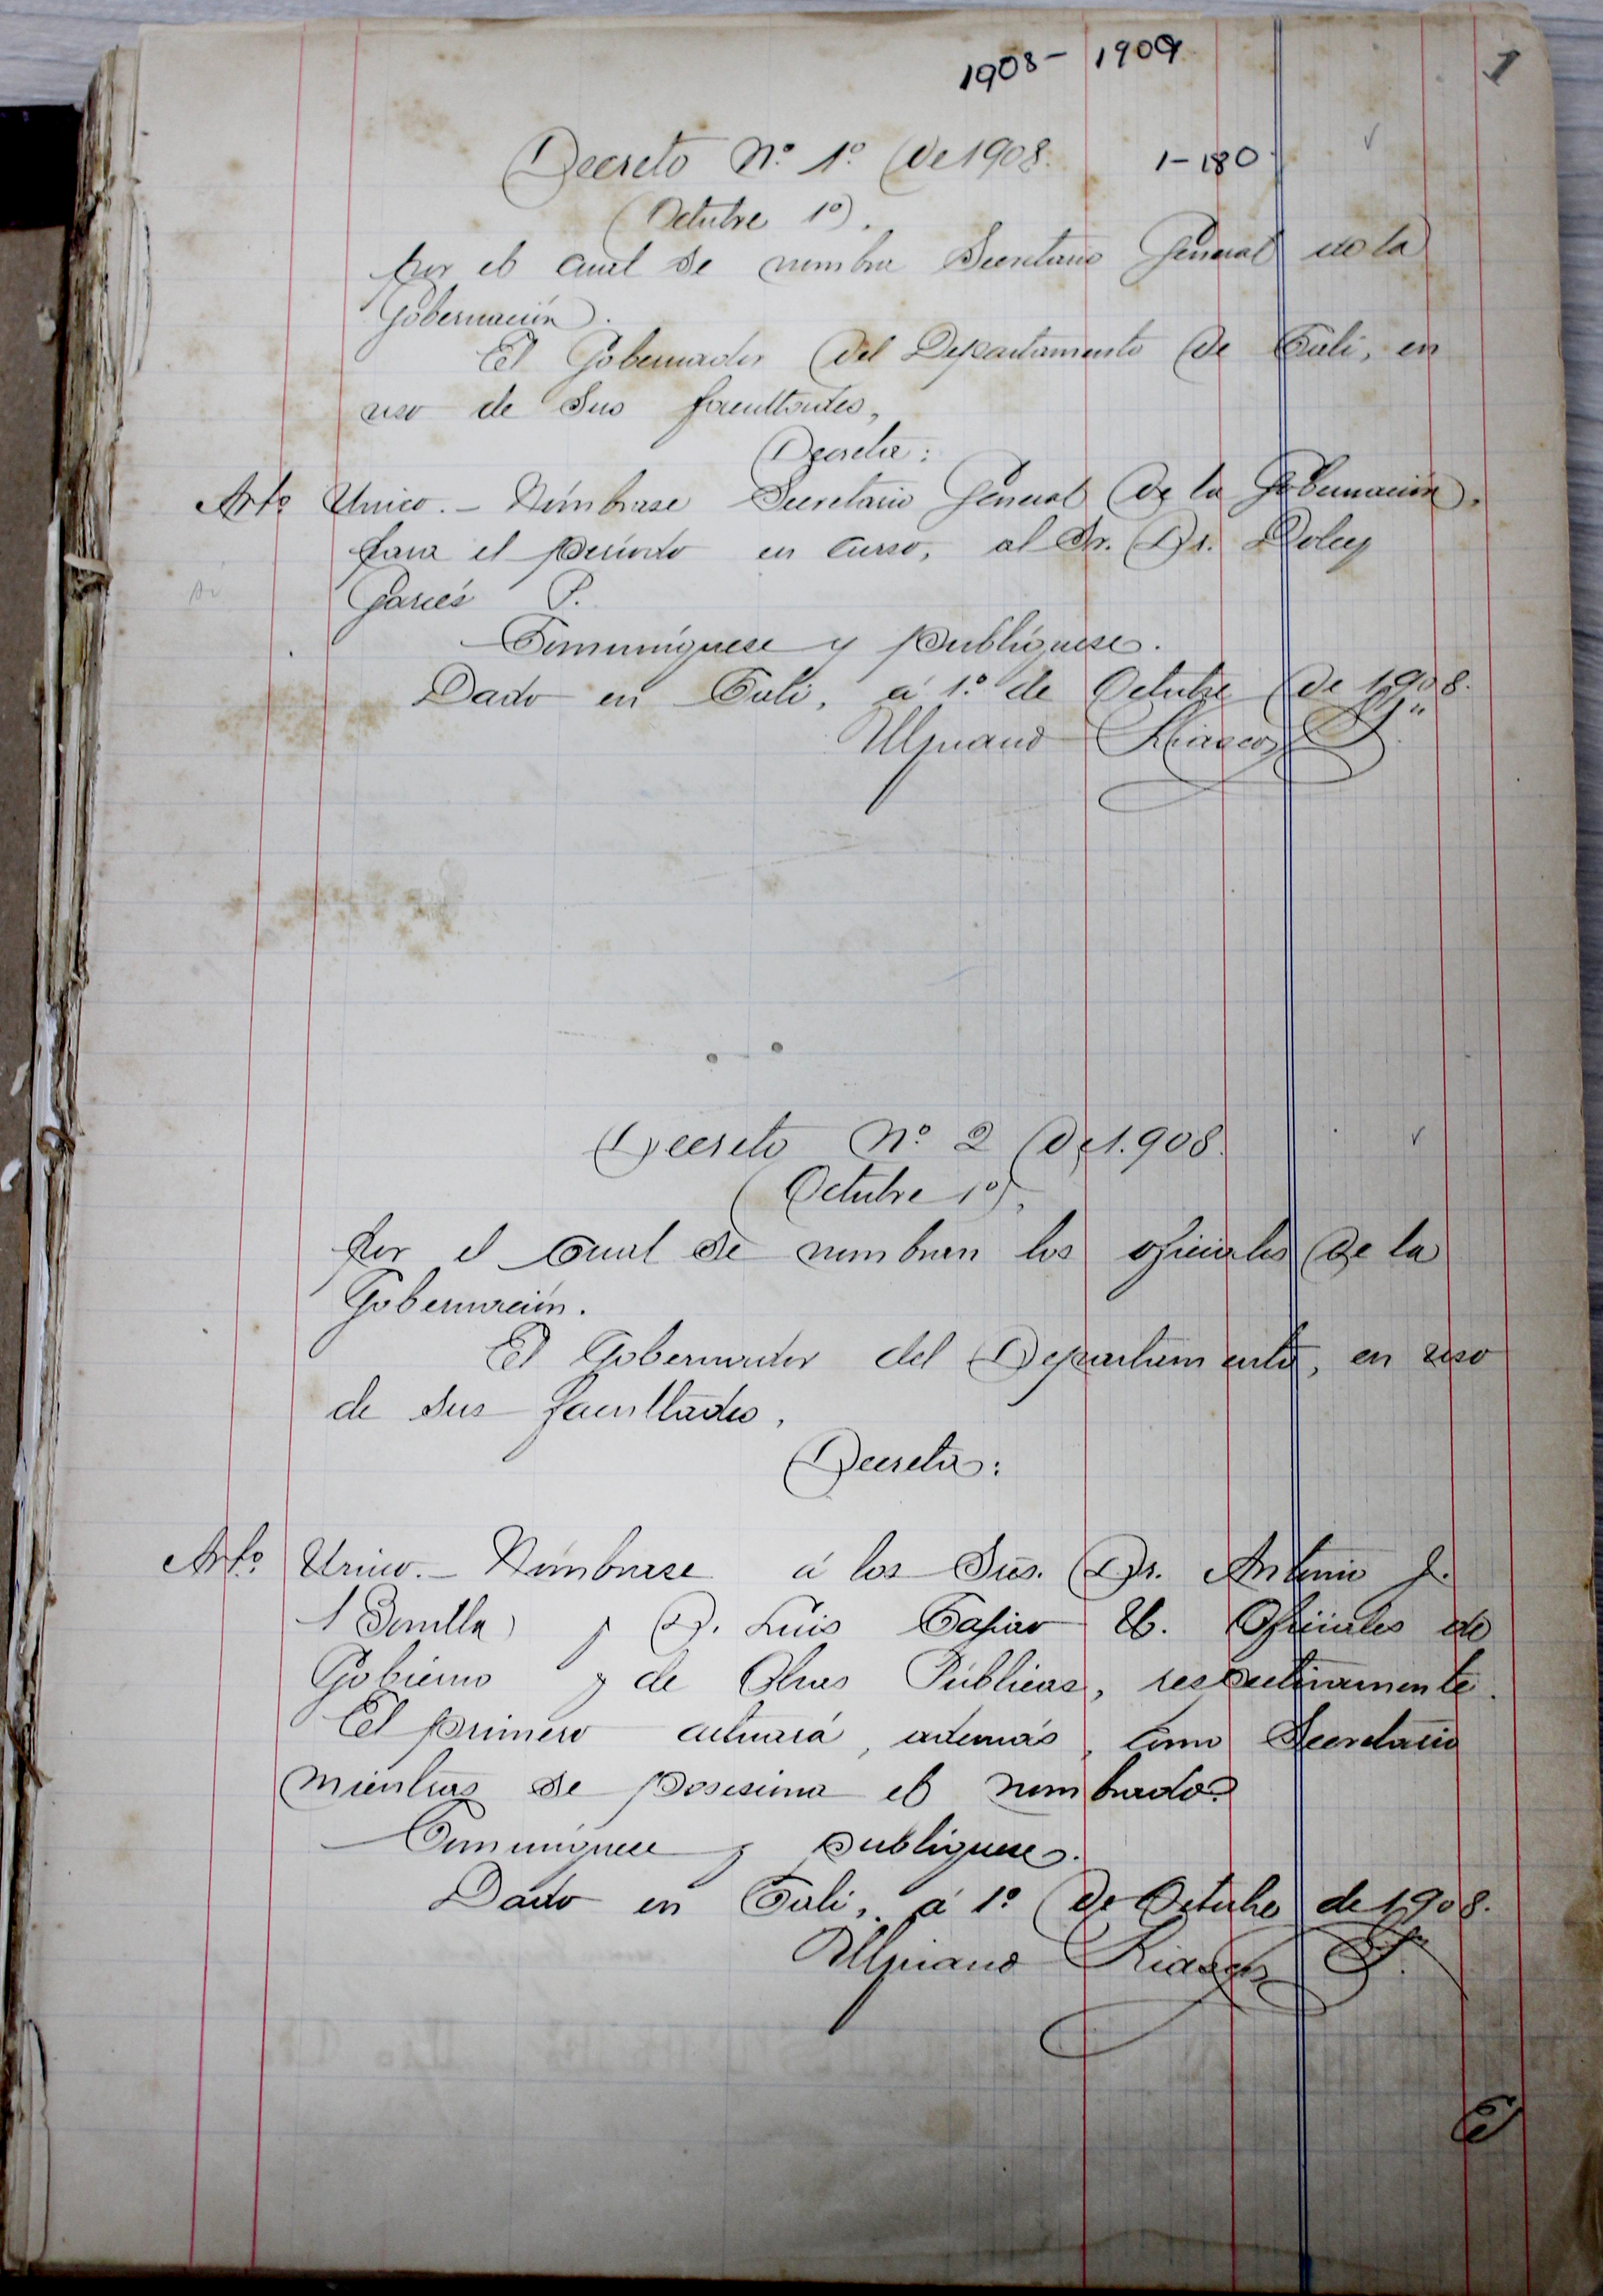 1908 - 1909
1
Decreto Nº 1º de 1908.
1-180
(Octubre 1º).
por el cual se nombra Secretario General de la
Gobernación.
El Gobernador del Departamento de Cali, en
uso de sus facultades,
Decreta:
Arto Unico. - Nómbrase Secretario General de la Gobernación,
para el período en curso, al Sr. Dr. Dolcey
Garcés P.
Comuníquese y publíquese.
Dado en Cali, á 1º de Octubre de 1908.
Ulpiano Riascos P.
Decreto Nº 2 de 1.908.
(Octubre 1º),
por el cual se nombran los oficiales de la
Gobernación.
El Gobernador del Departamento, en uso
de sus facultades,
Decreta:
Arto Unico. - Nómbrase á los Sres. Dr. Antonio J.
Bonilla y D. Luis Oficiales de
Gobierno y de Obras Públicas, respectivamente.
El primero actuará, además, como Secretario
mientras se posesiona el nombrado.
Comuníquese y publíquese.
Dado en Cali, á 1º de Octubre de 1908.
Ulpiano Riascos P.